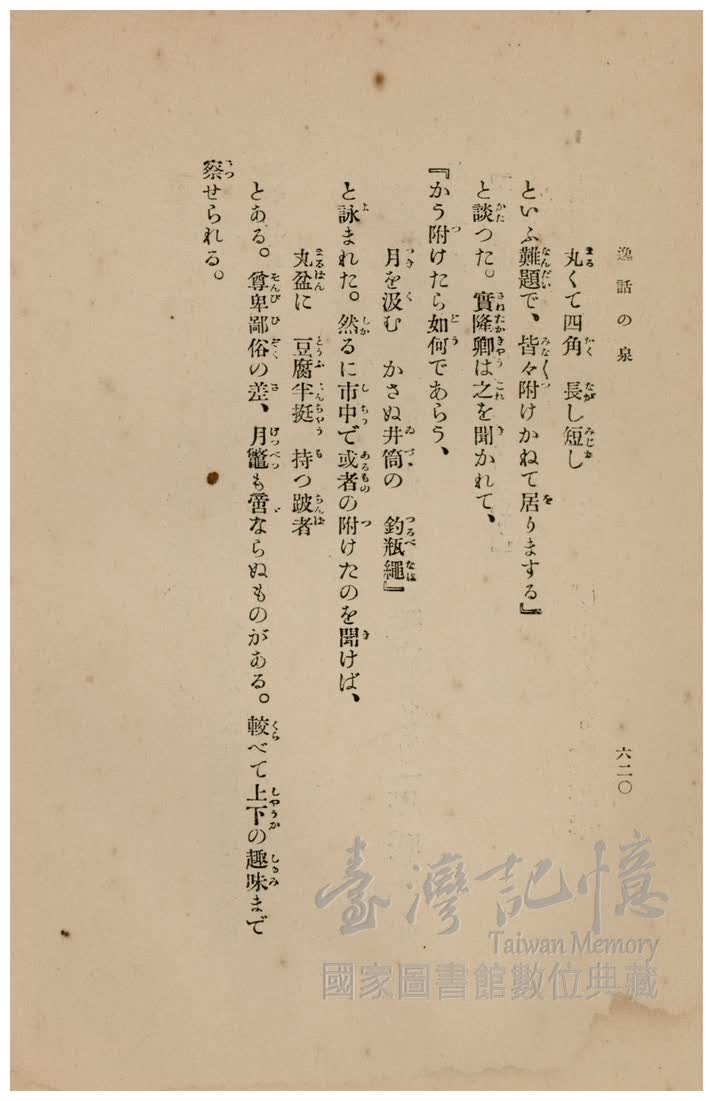 逸話の泉
六二〇
丸くて四角　長し短し
といふ難題で、皆々附けかねて居りまする』
と談つた。實隆卿は之を聞かれて、
『かう附けたら如何であらう、
月を汲む　かさぬ井筒の　釣瓶繩』
と詠まれた。然るに市中で或者の附けたのを聞けば、
丸盆に　豆腐半挺　持つ跛者
とある。尊卑鄙俗の差、月鼈も啻ならぬものがある。較べて上下の趣味まで
察せられる。
臺灣記憶
Taiwan Memory
國家圖書館數位典藏